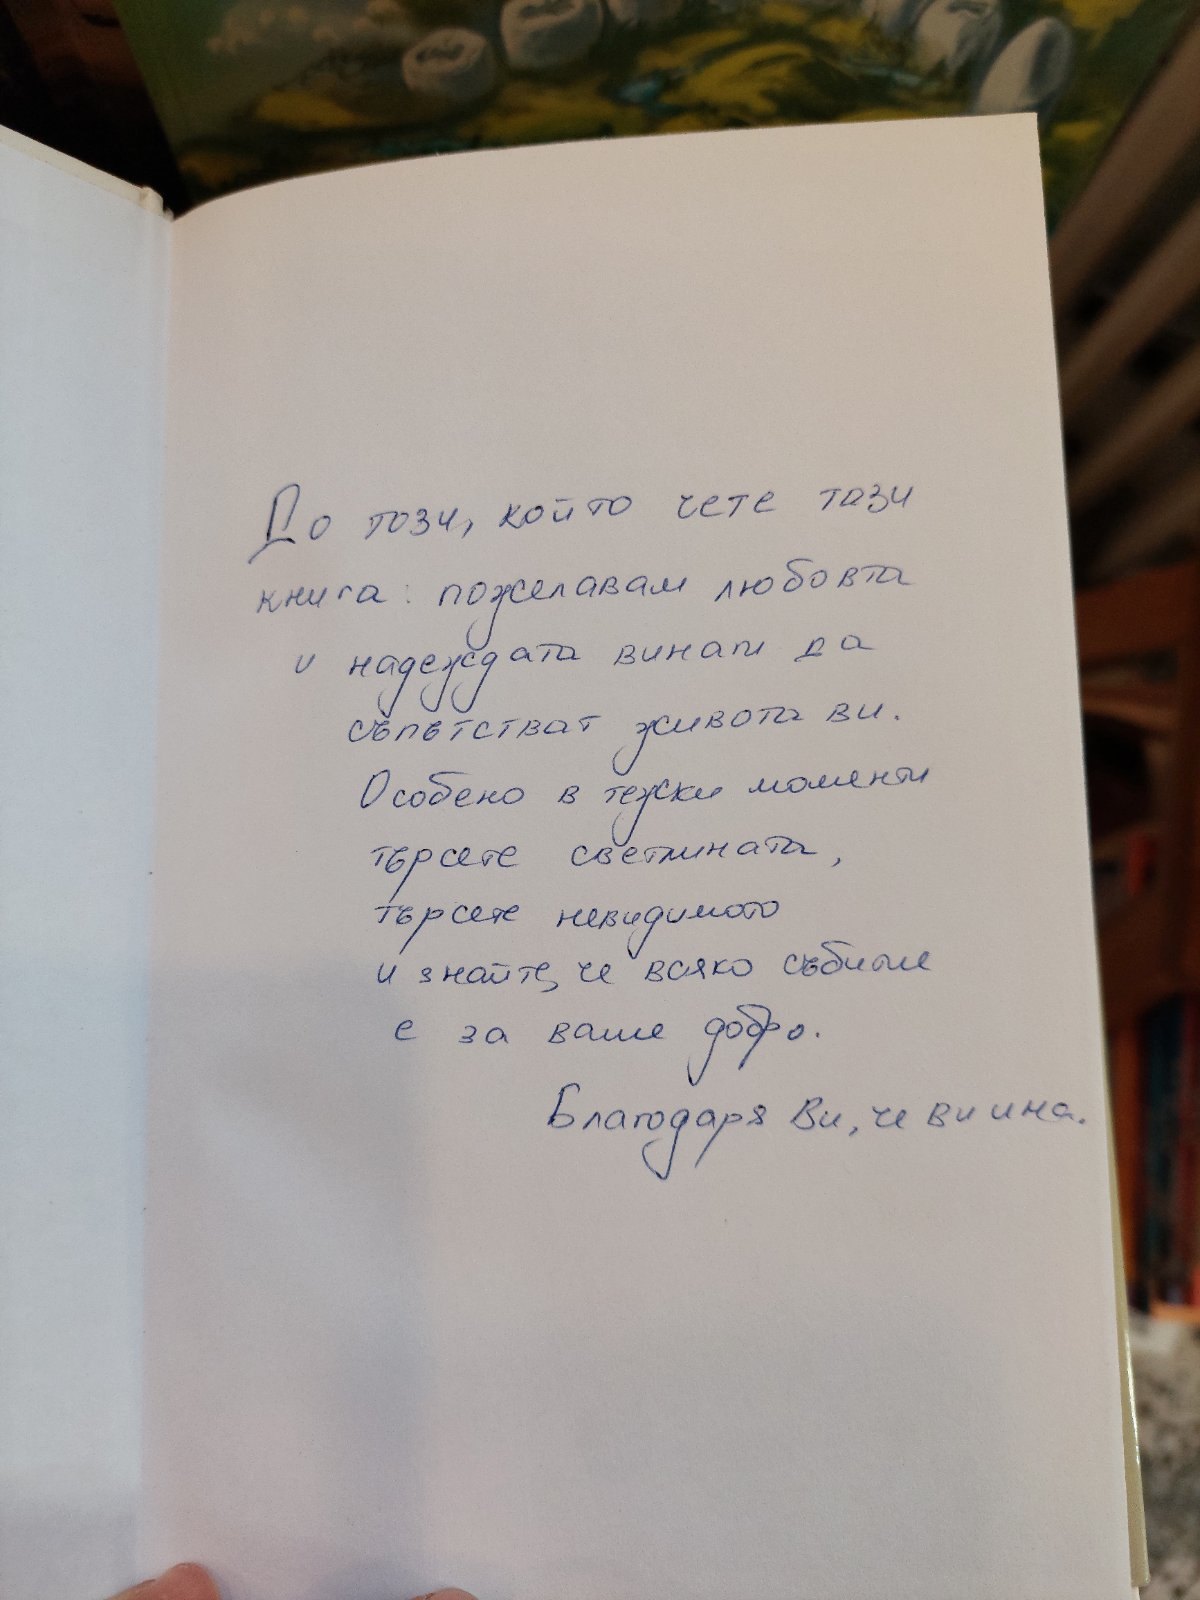 До този, който чете тази
книга: пожелавам любовта
и надеждата винаги да
съпътстват живота ви.
Особено в тежки моменти
търсете светлината,
търсете невидимото
и знайте, че всяко събитие
е за ваше добро.
Благодаря Ви, че ви има.